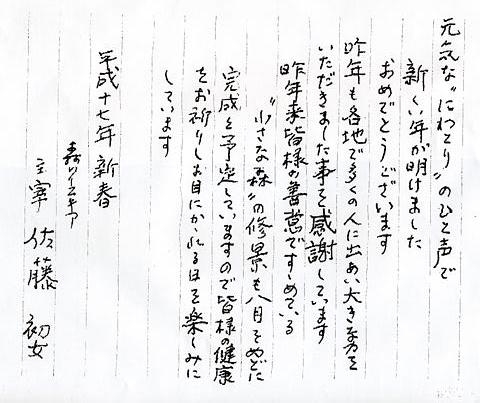 元気な"にわとり"のひと声で
新しい年が明けました
おめでとうございます
昨年も各地で多くの人に出あい大きな力を
いただきました事を感謝しています
昨年来皆様の善意ですゝめている
"小さな森"の修景も八月をめどに
完成を予定していますので皆様の健康
をお祈りしお目にかゝれる日を楽しみに
しています
平成十七年 新春
森のイスキア
主宰 佐藤 初女